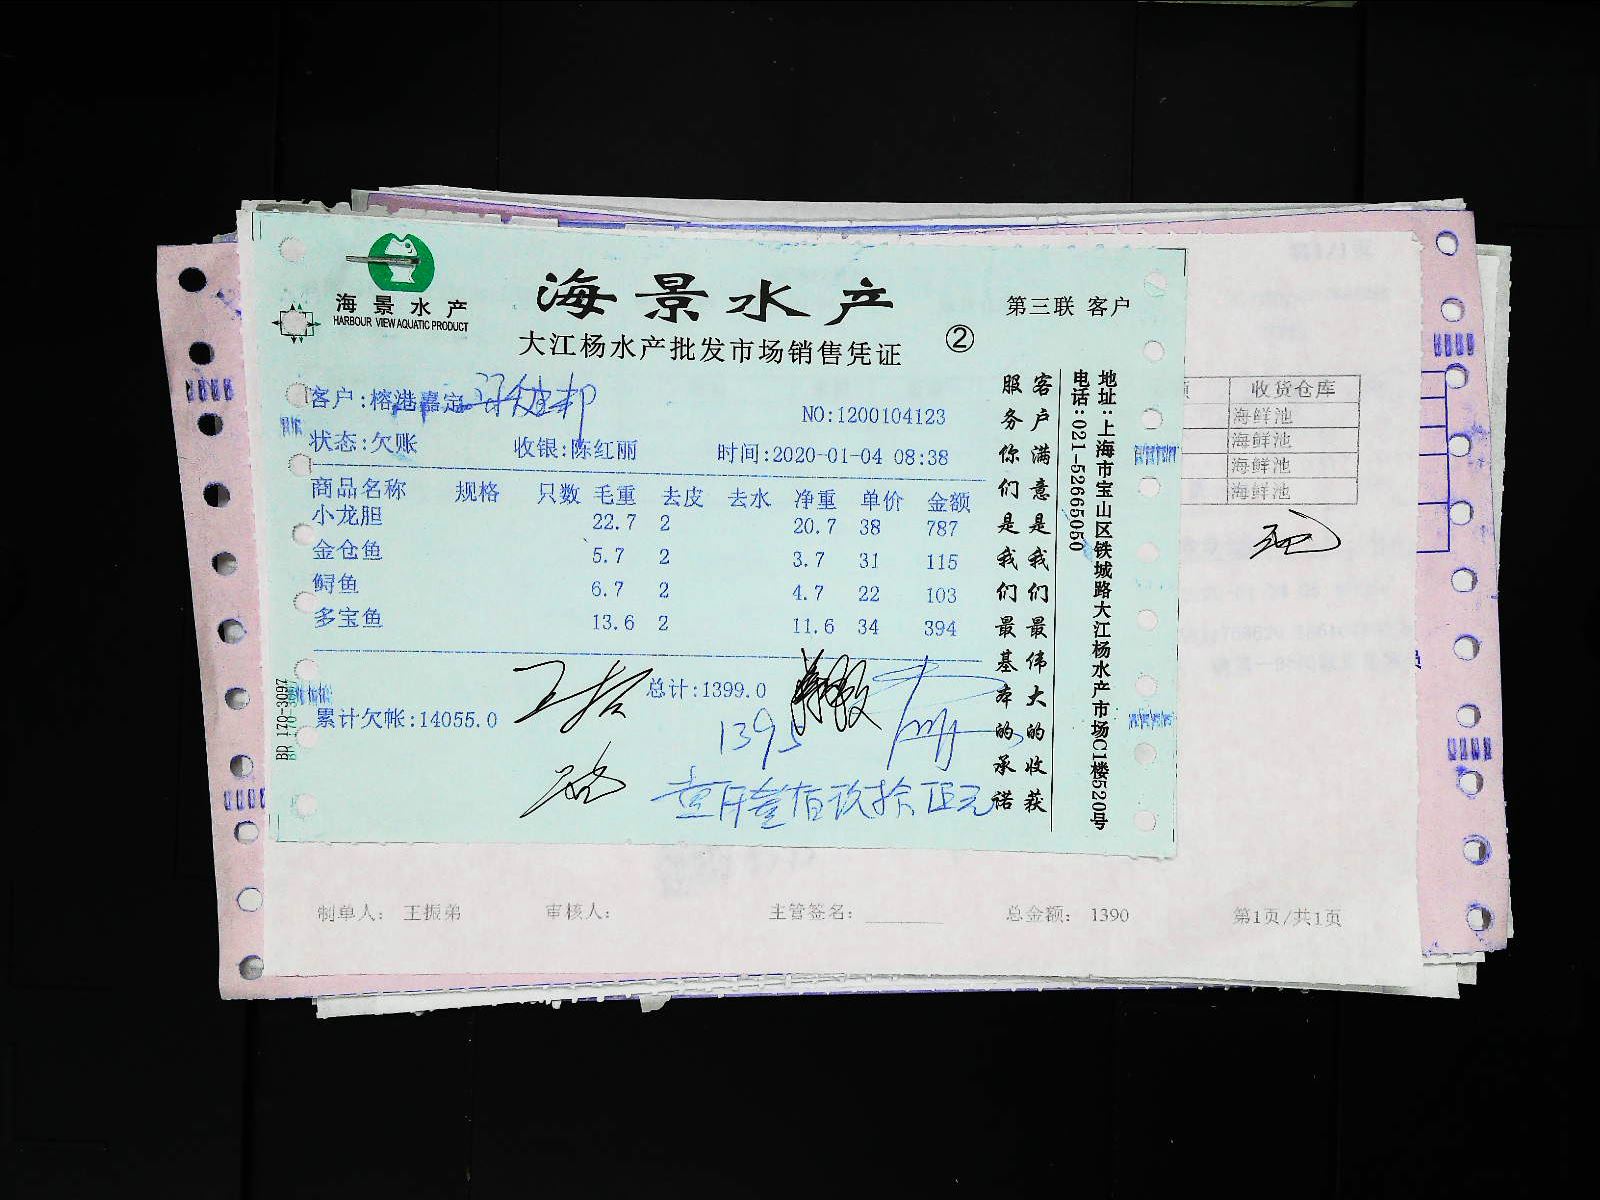 海景水产
HARBOUR VIEW AQUATIC PRODUCT
海景水产
第三联 客户
大江杨水产批发市场销售凭证
②
客户:榕港嘉定
NO:1200104123
状态:欠账 收银:陈红丽 时间:2020-01-04 08:38
商品名称 规格 只数 毛重 去皮 去水 净重 单价 金额
小龙胆 22.7 2 20.7 38 787
金仓鱼 5.7 2 3.7 31 115
鲟鱼 6.7 2 4.7 22 103
多宝鱼 13.6 2 11.6 34 394
总计:1399.0
累计欠帐:14055.0
139
壹仟叁佰玖拾正元
客户满意是我们最伟大的收获
服务你们是我们最基本的承诺
地址:上海市宝山区铁城路大江杨水产市场C1楼520号
电话:021-52665050
BD 170-3097
收货仓库
海鲜池
海鲜池
海鲜池
海鲜池
制单人: 王振弟 审核人: 主管签名: 总金额: 1390 第1页/共1页